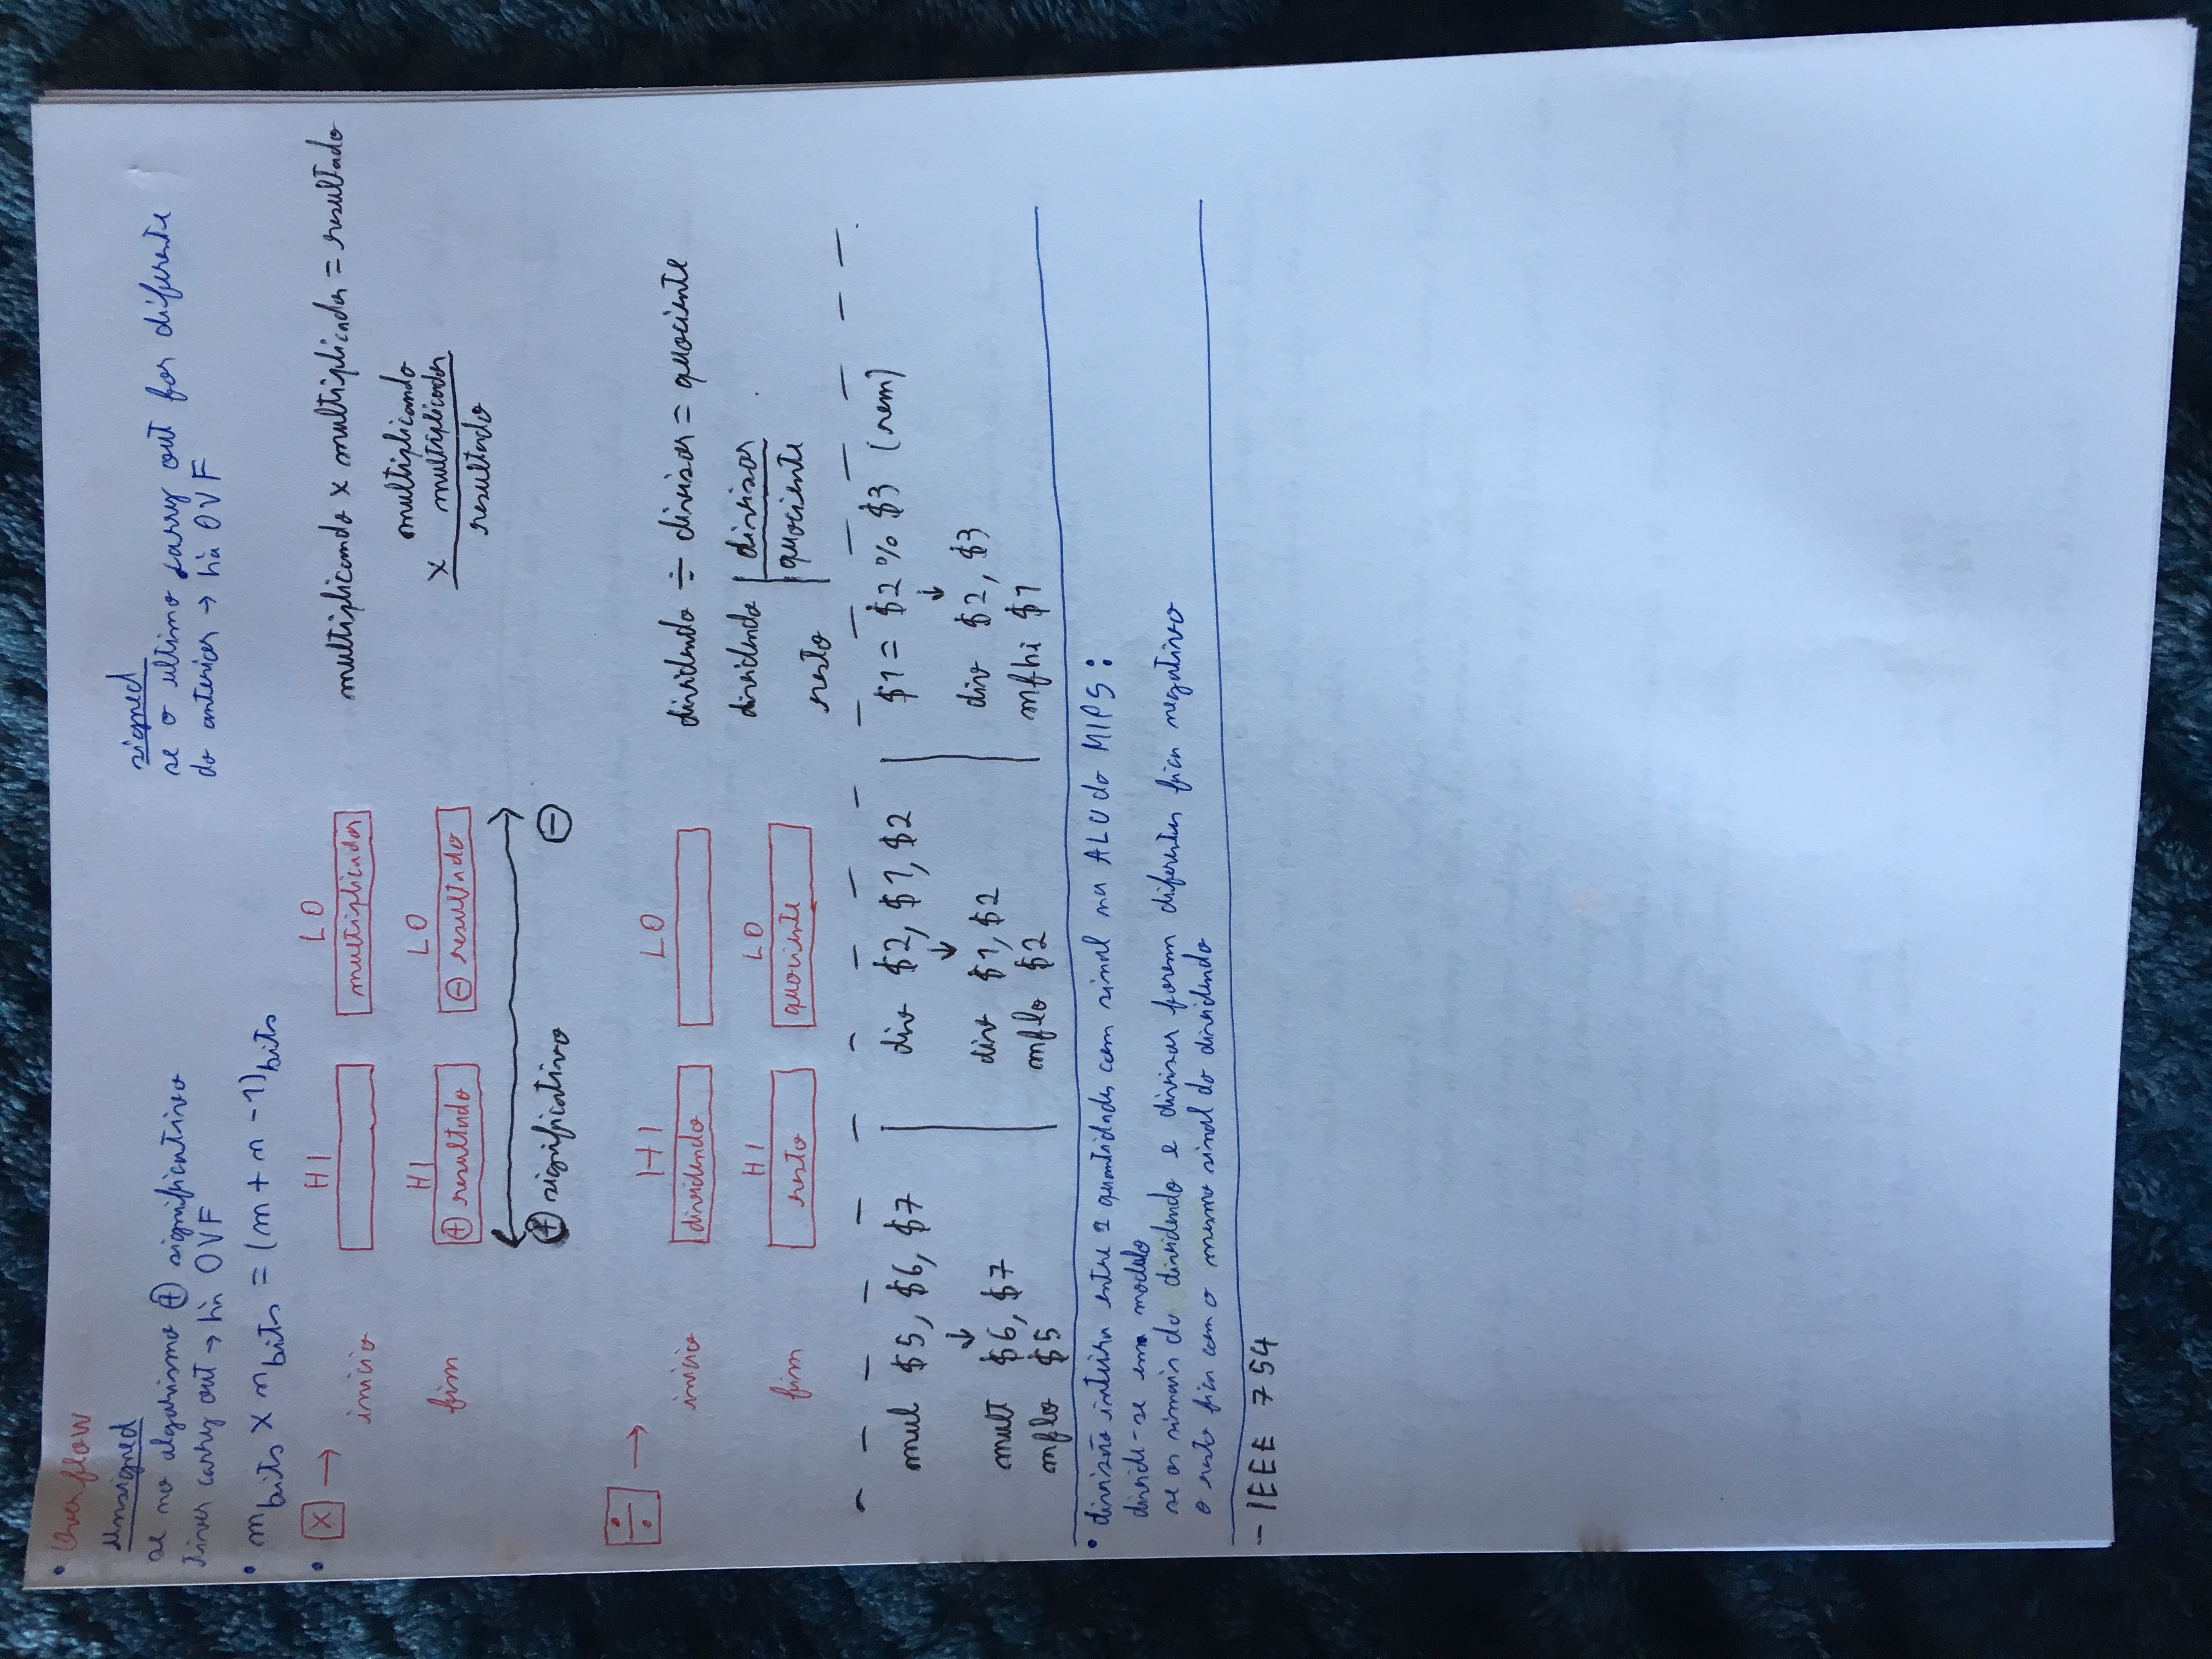 • Overflow
Unsigned
se no algarismo ⊕ significativo
tiver carry out → há OVF
signed
se o ultimo carry out for diferente
do anterior → há OVF
• m bits × n bits = (m + n - 1) bits
• × →
HI LO
inicio multiplicador
HI LO
fim ⊕ resultado ⊖ resultado
⊕ significativo ⊖
multiplicando × multiplicador = resultado
multiplicando
× multiplicador
resultado
÷ →
HI LO
inicio dividendo
HI LO
fim resto quociente
dividendo ÷ divisor = quociente
dividendo divisor
quociente
resto
mul $5, $6, $7
↓
mult $6, $7
mflo $5
div $2, $1, $2
↓
div $1, $2
mflo $2
$1 = $2 % $3 (rem)
↓
div $2, $3
mfhi $1
• divisão inteira entre 2 quantidades com sinal na ALU do MIPS:
divide-se em modulo
se os sinais do dividendo e divisor forem diferentes fica negativo
o resto fica com o mesmo sinal do dividendo
- IEEE 754